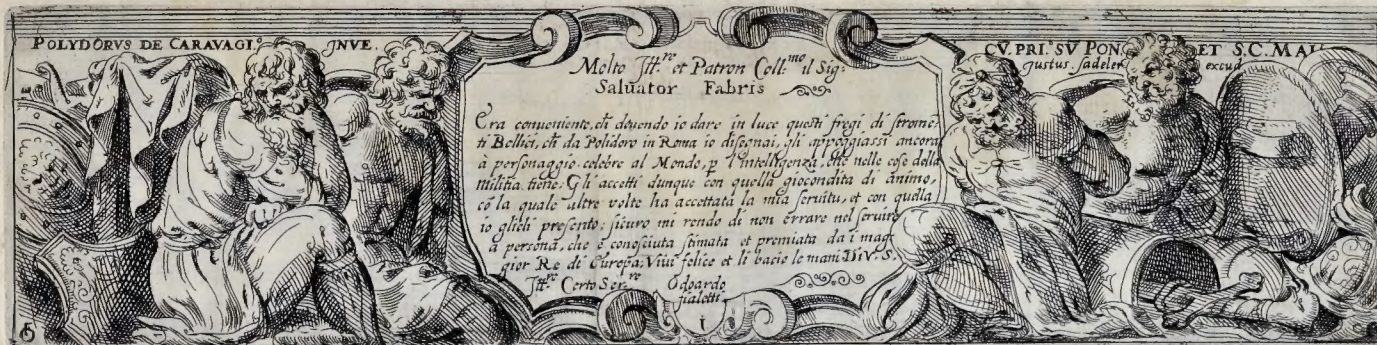 POLYDORVS DE CARAVAGI.º INVE.
CV. PRI.º SV PON. ET S.C. MAI.
Justus sadeler excud
Molto Ill.re et Patron Coll.mo il Sig:
Saluator Fabris
Era conueniente, ch̃ douendo io dare in luce questi fregi di strome,
ti Bellici, ch̃ da Polidoro in Roma io disegnai, gli appoggiassi ancora
à personaggio celebre al Mondo, p l'intelligenza, che nelle cose della
Militia tiene. Gli accetti dunque con quella giocondita di animo,
cõ la quale altre volte ha accettata la mia seruitu, et con quella
io glieli presento: sicuro mi rendo di non errare nel seruire
à persona, che è conosciuta stimata et premiata da i mag
gior Re di Europa, Viui felice et li bacie le mani Di V. S.
Ill.re Certo Ser.re Odoardo
fialetti
1